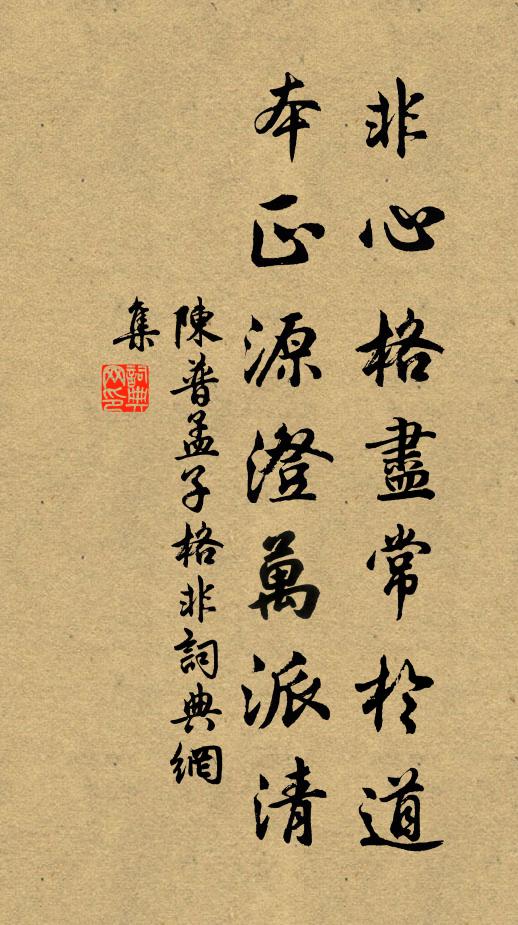 非心格盡常於道
本正源澄萬派清
陳普孟子格非詞典網
集
詞典
網印